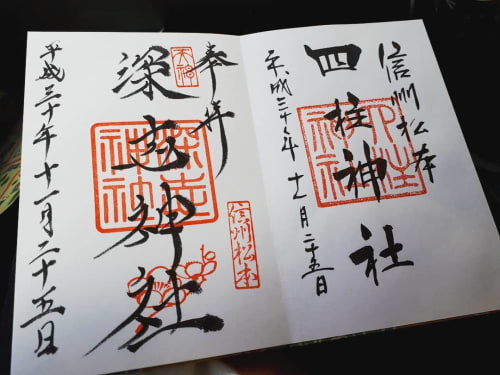 信州松本
四柱神社
平成三十年十一月二十五日
奉拝
天神
深志神社
信州松本
平成三十年十一月二十五日